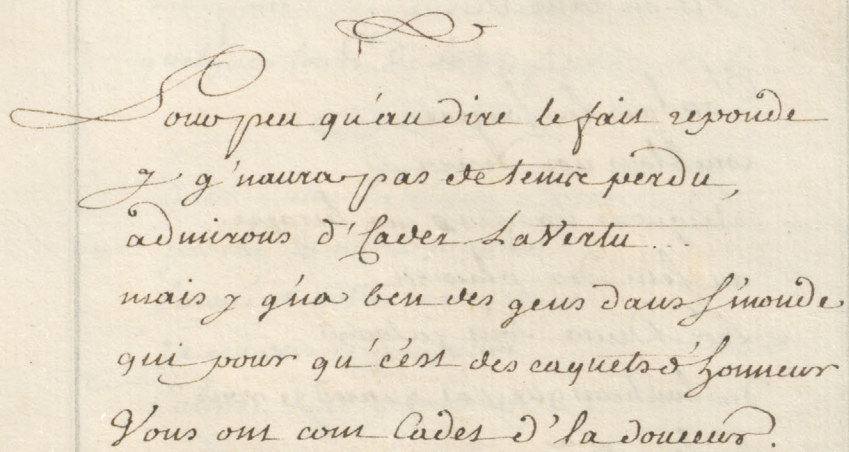 Pour peu qu'au dire le fait reponde
y g'naura pas de tems perdu,
admirons d'Cadet La Vertu...
mais y g'na ben des gens dans l'monde
qui pour qu'c'est des caquets d'honneur
Vous ont com Cadet d'la douceur.